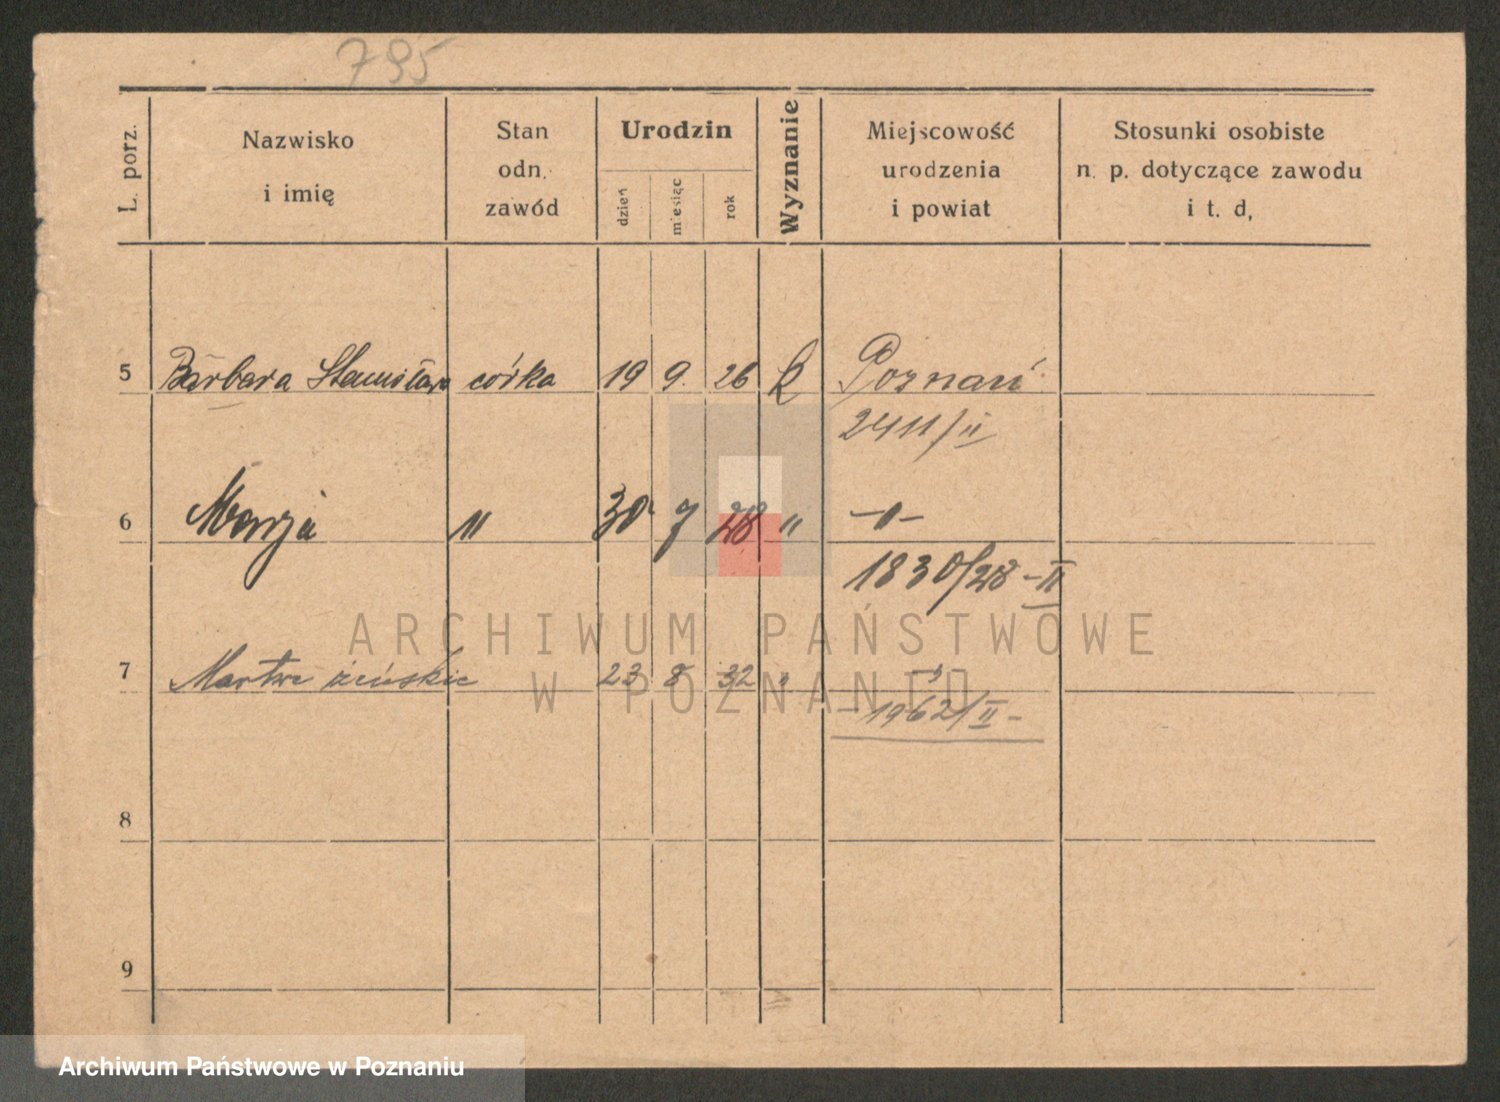 795
L. porz.
Nazwisko
i imię
Stan
odn.
zawód
Urodzin
dzień
miesiąc
rok
Wyznanie
Miejscowość
urodzenia
i powiat
Stosunki osobiste
n. p. dotyczące zawodu
i t. d,
5 Barbara Stanisława córka 19 9. 26 k Poznań
2411/II
6 Marja " 30 7 28 " —"—
1830/28 - II
7 Martwe żeńskie 23 8 32 " —"—
- 1962/II -
8
9
ARCHIWUM PAŃSTWOWE
W POZNANIU
Archiwum Państwowe w Poznaniu